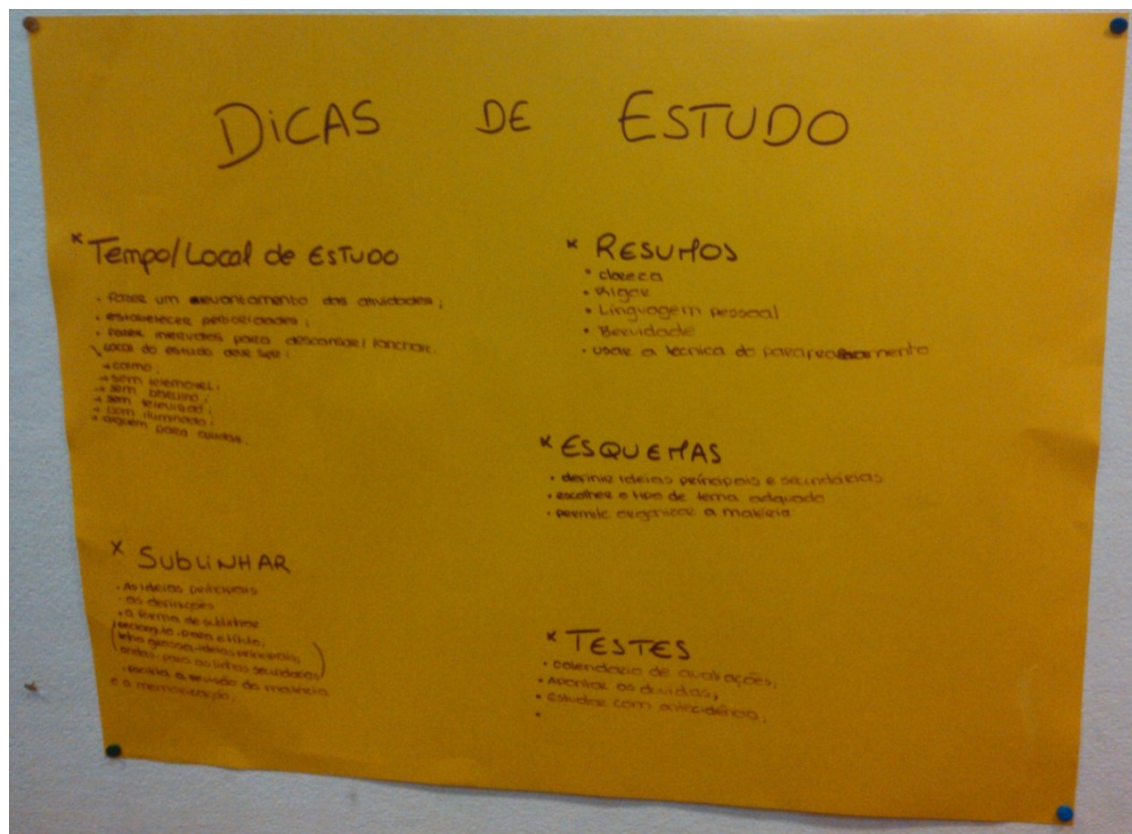 DiCAS DE ESTUDO
× Tempo/Local de ESTUDO
• fazer um levantamento das atividades;
• estabelecer perioridades;
• fazer intervalos para descansar/lanchar.
Local do estudo deve ser:
→ calmo;
→ sem telemóvel;
→ sem barulho;
→ sem televisão;
→ bem iluminado;
→ alguém para ajudar.
× SUBLINHAR
• As ideias principais
• as definições
• a forma de sublinhar
(rectângulo-para o título,
linha grossa-ideias principais,
ondas-para as linhas secundárias)
• facilita a revisão da matéria
e a memorização;
× RESUMOS
• clareca
• Rigor
• Linguagem pessoal
• Bervidade
• usar a tecnica do
× ESQUEMAS
• definir ideias principais e secundárias
• escolher o tipo de tema adquado
• permite organizar a matéria
× TESTES
• calendario de avaliações;
• Apontar as duvidas;
• Estudar com antecidência;
•